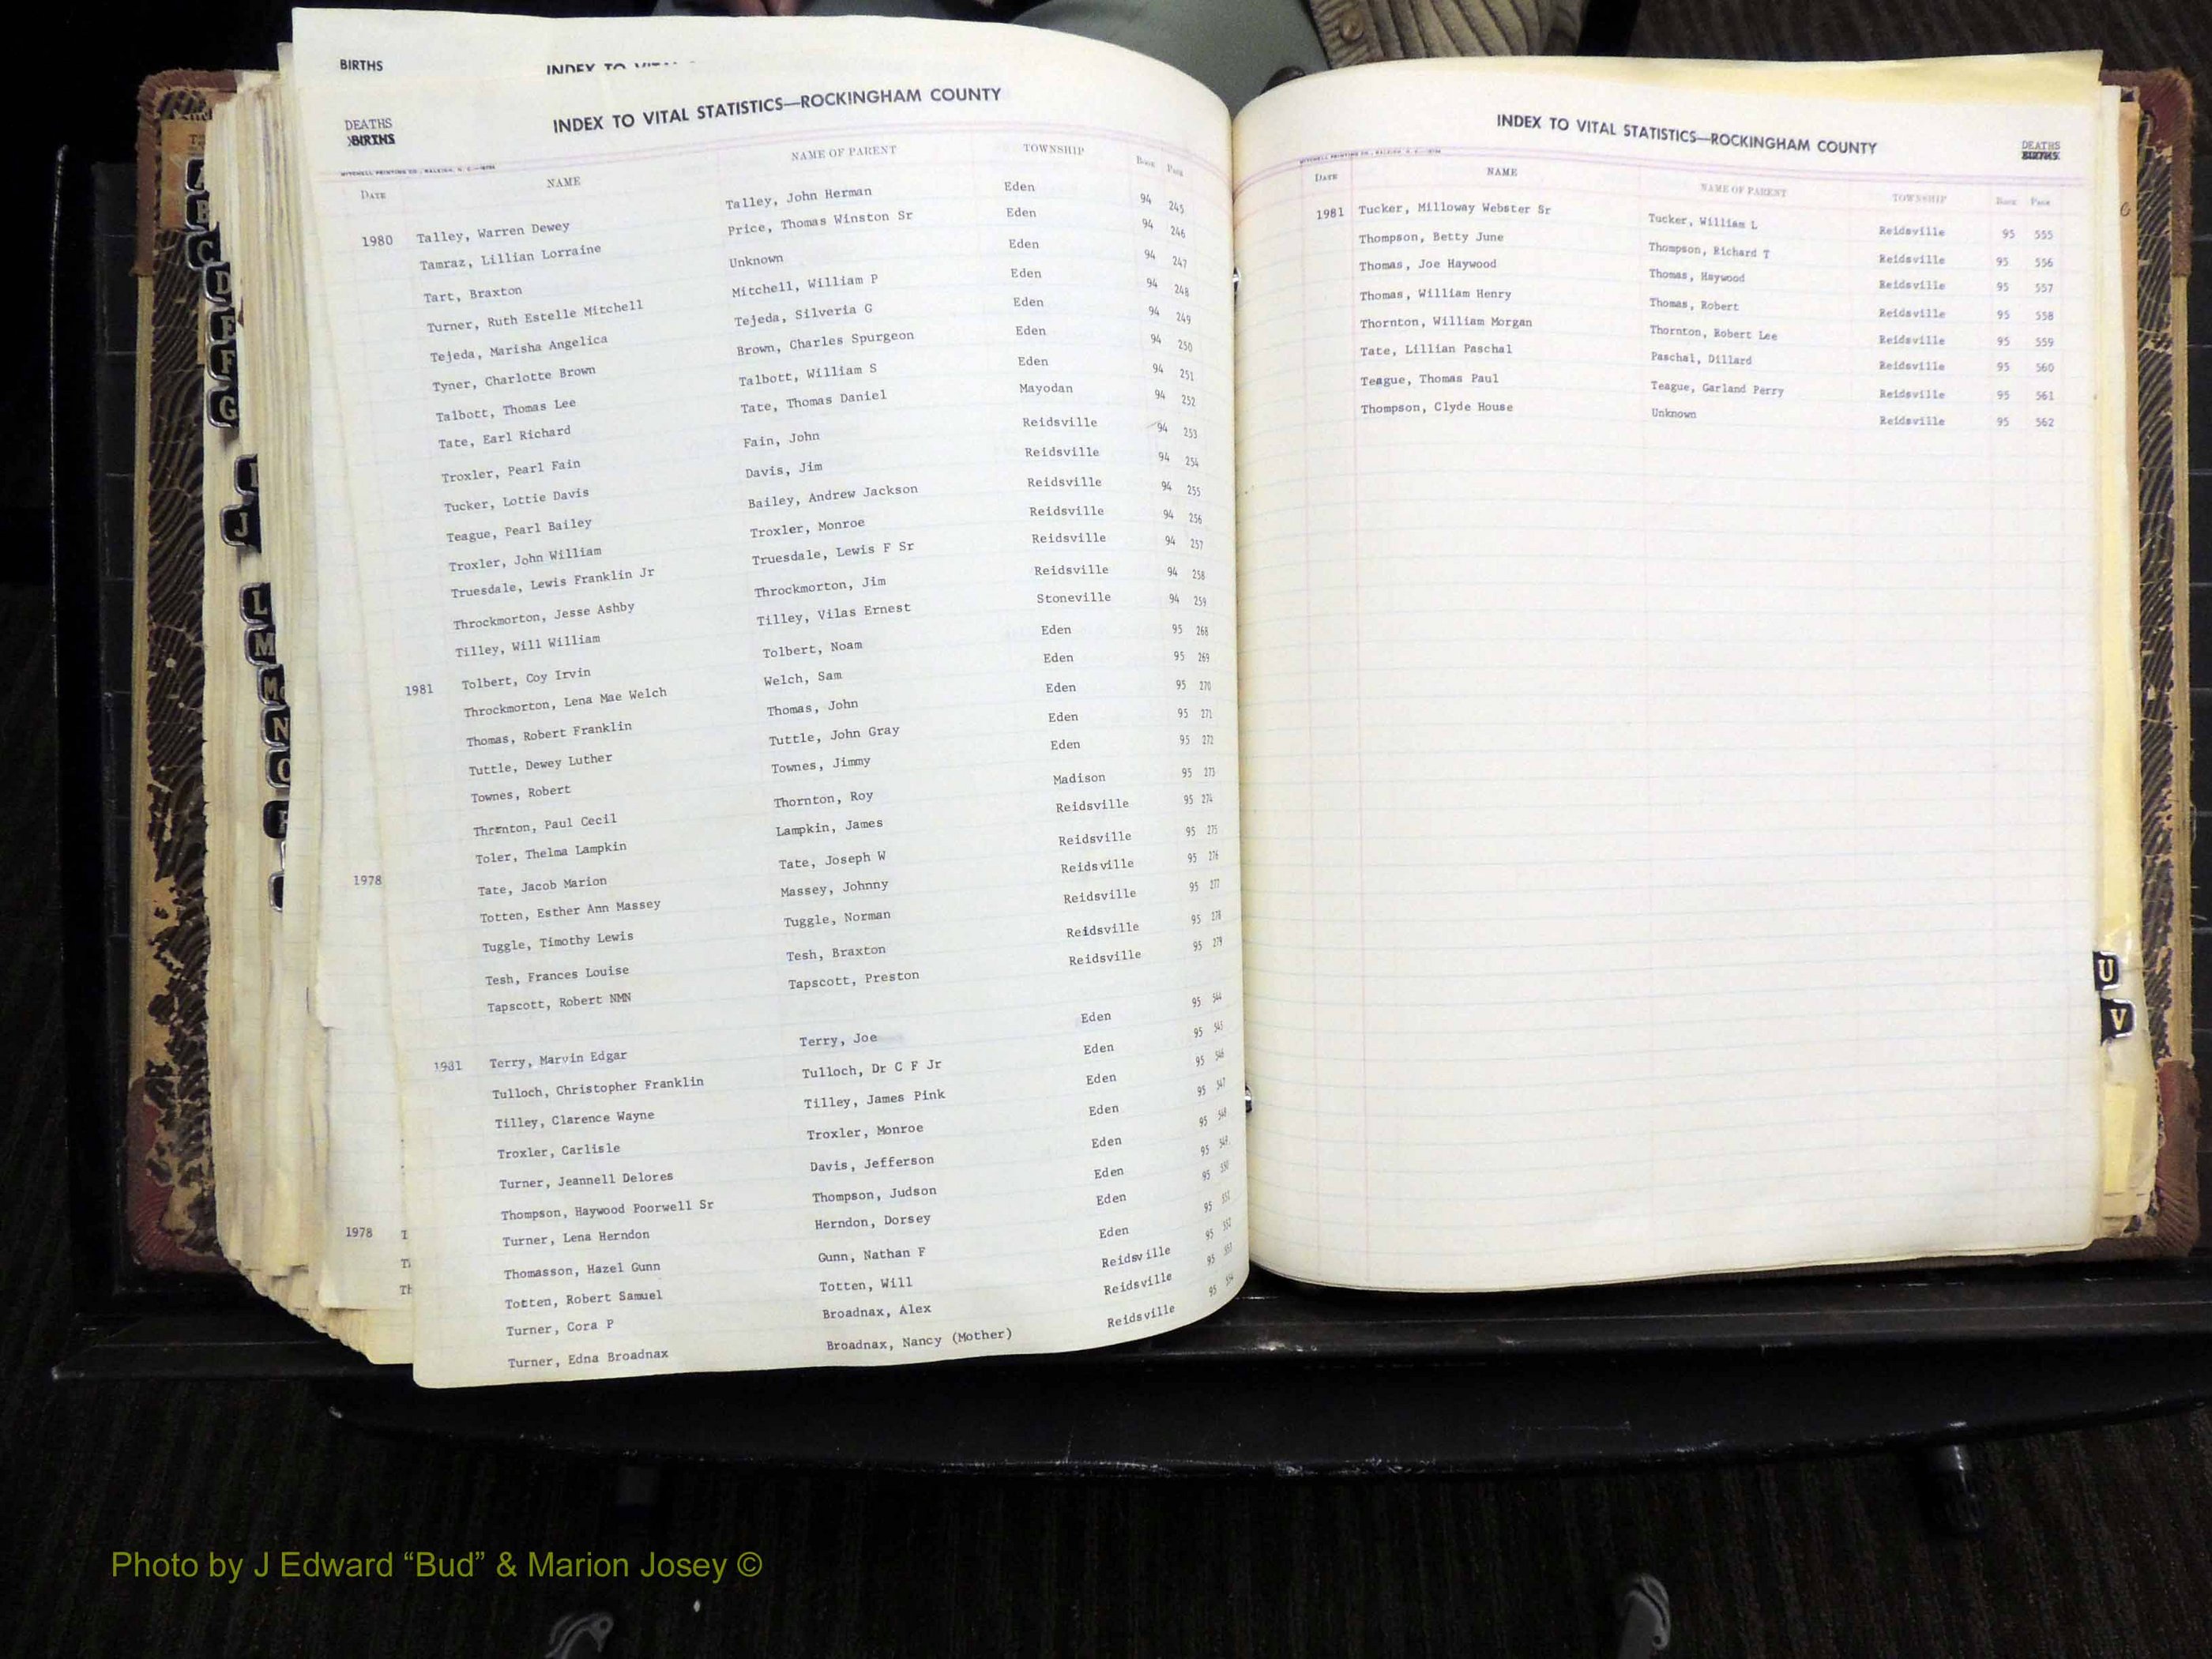 BIRTHS
DEATHS
BIRTHS
INDEX TO VITAL STATISTICS—ROCKINGHAM COUNTY
MITCHELL PRINTING CO., RALEIGH, N. C.
DATE NAME NAME OF PARENT TOWNSHIP BOOK PAGE
1980 Talley, Warren Dewey Talley, John Herman Eden 94 245
Tamraz, Lillian Lorraine Price, Thomas Winston Sr Eden 94 246
Tart, Braxton Unknown Eden 94 247
Turner, Ruth Estelle Mitchell Mitchell, William P Eden 94 248
Tejeda, Marisha Angelica Tejeda, Silveria G Eden 94 249
Tyner, Charlotte Brown Brown, Charles Spurgeon Eden 94 250
Talbott, Thomas Lee Talbott, William S Eden 94 251
Tate, Earl Richard Tate, Thomas Daniel Mayodan 94 252
Troxler, Pearl Fain Fain, John Reidsville 94 253
Tucker, Lottie Davis Davis, Jim Reidsville 94 254
Teague, Pearl Bailey Bailey, Andrew Jackson Reidsville 94 255
Troxler, John William Troxler, Monroe Reidsville 94 256
Truesdale, Lewis Franklin Jr Truesdale, Lewis F Sr Reidsville 94 257
Throckmorton, Jesse Ashby Throckmorton, Jim Reidsville 94 258
Tilley, Will William Tilley, Vilas Ernest Stoneville 94 259
1981 Tolbert, Coy Irvin Tolbert, Noam Eden 95 268
Throckmorton, Lena Mae Welch Welch, Sam Eden 95 269
Thomas, Robert Franklin Thomas, John Eden 95 270
Tuttle, Dewey Luther Tuttle, John Gray Eden 95 271
Townes, Robert Townes, Jimmy Eden 95 272
Thrxnton, Paul Cecil Thornton, Roy Madison 95 273
Toler, Thelma Lampkin Lampkin, James Reidsville 95 274
1978
Tate, Jacob Marion Tate, Joseph W Reidsville 95 275
Totten, Esther Ann Massey Massey, Johnny Reidsville 95 276
Tuggle, Timothy Lewis Tuggle, Norman Reidsville 95 277
Tesh, Frances Louise Tesh, Braxton Reidsville 95 278
Tapscott, Robert NMN Tapscott, Preston Reidsville 95 279
1981 Terry, Marvin Edgar Terry, Joe Eden 95 544
Tulloch, Christopher Franklin Tulloch, Dr C F Jr Eden 95 545
Tilley, Clarence Wayne Tilley, James Pink Eden 95 546
Troxler, Carlisle Troxler, Monroe Eden 95 547
Turner, Jeannell Delores Davis, Jefferson Eden 95 548
Thompson, Haywood Poorwell Sr Thompson, Judson Eden 95 549
Turner, Lena Herndon Herndon, Dorsey Eden 95 550
Thomasson, Hazel Gunn Gunn, Nathan F Eden 95 551
Totten, Robert Samuel Totten, Will Reidsville 95 552
Turner, Cora P Broadnax, Alex Reidsville 95 553
Turner, Edna Broadnax Broadnax, Nancy (Mother) Reidsville 95 554
1978 T
Th
INDEX TO VITAL STATISTICS—ROCKINGHAM COUNTY
DEATHS
BIRTHS
DATE NAME NAME OF PARENT TOWNSHIP BOOK PAGE
1981 Tucker, Milloway Webster Sr Tucker, William L Reidsville 95 555
Thompson, Betty June Thompson, Richard T Reidsville 95 556
Thomas, Joe Haywood Thomas, Haywood Reidsville 95 557
Thomas, William Henry Thomas, Robert Reidsville 95 558
Thornton, William Morgan Thornton, Robert Lee Reidsville 95 559
Tate, Lillian Paschal Paschal, Dillard Reidsville 95 560
Teague, Thomas Paul Teague, Garland Perry Reidsville 95 561
Thompson, Clyde House Unknown Reidsville 95 562
A
B
C
D
F
G
J
L
M
Mc
N
O
U
V
Photo by J Edward “Bud” & Marion Josey ©